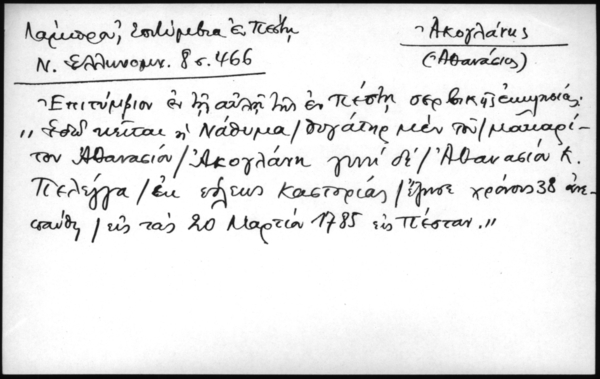 Λάμπρου, Ἐπιτύμβια ἐν Πέστῃ
Ν. Ἑλληνομν. 8 σ. 466
Ἀκογλάνης
(Ἀθανάσιος)
Ἐπιτύμβιον ἐν τῇ αὐλῇ τῆς ἐν Πέστῃ σερβικῆς ἐκκλησίας.
„Ἐδῶ κεῖται ἡ Νάθυμα/θυγάτηρ μὲν τοῦ/μακαρί-
του Ἀθανασίου/Ἀκογλάνη γυνὴ δέ/Ἀθανασίου Κ.
Πελέγγα/ἐκ πόλεως Καστορίας/ἔζησε χρόνους 38 ἀνε-
παύθη/εἰς τὰς 20 Μαρτίου 1785 εἰς Πέσταν.„